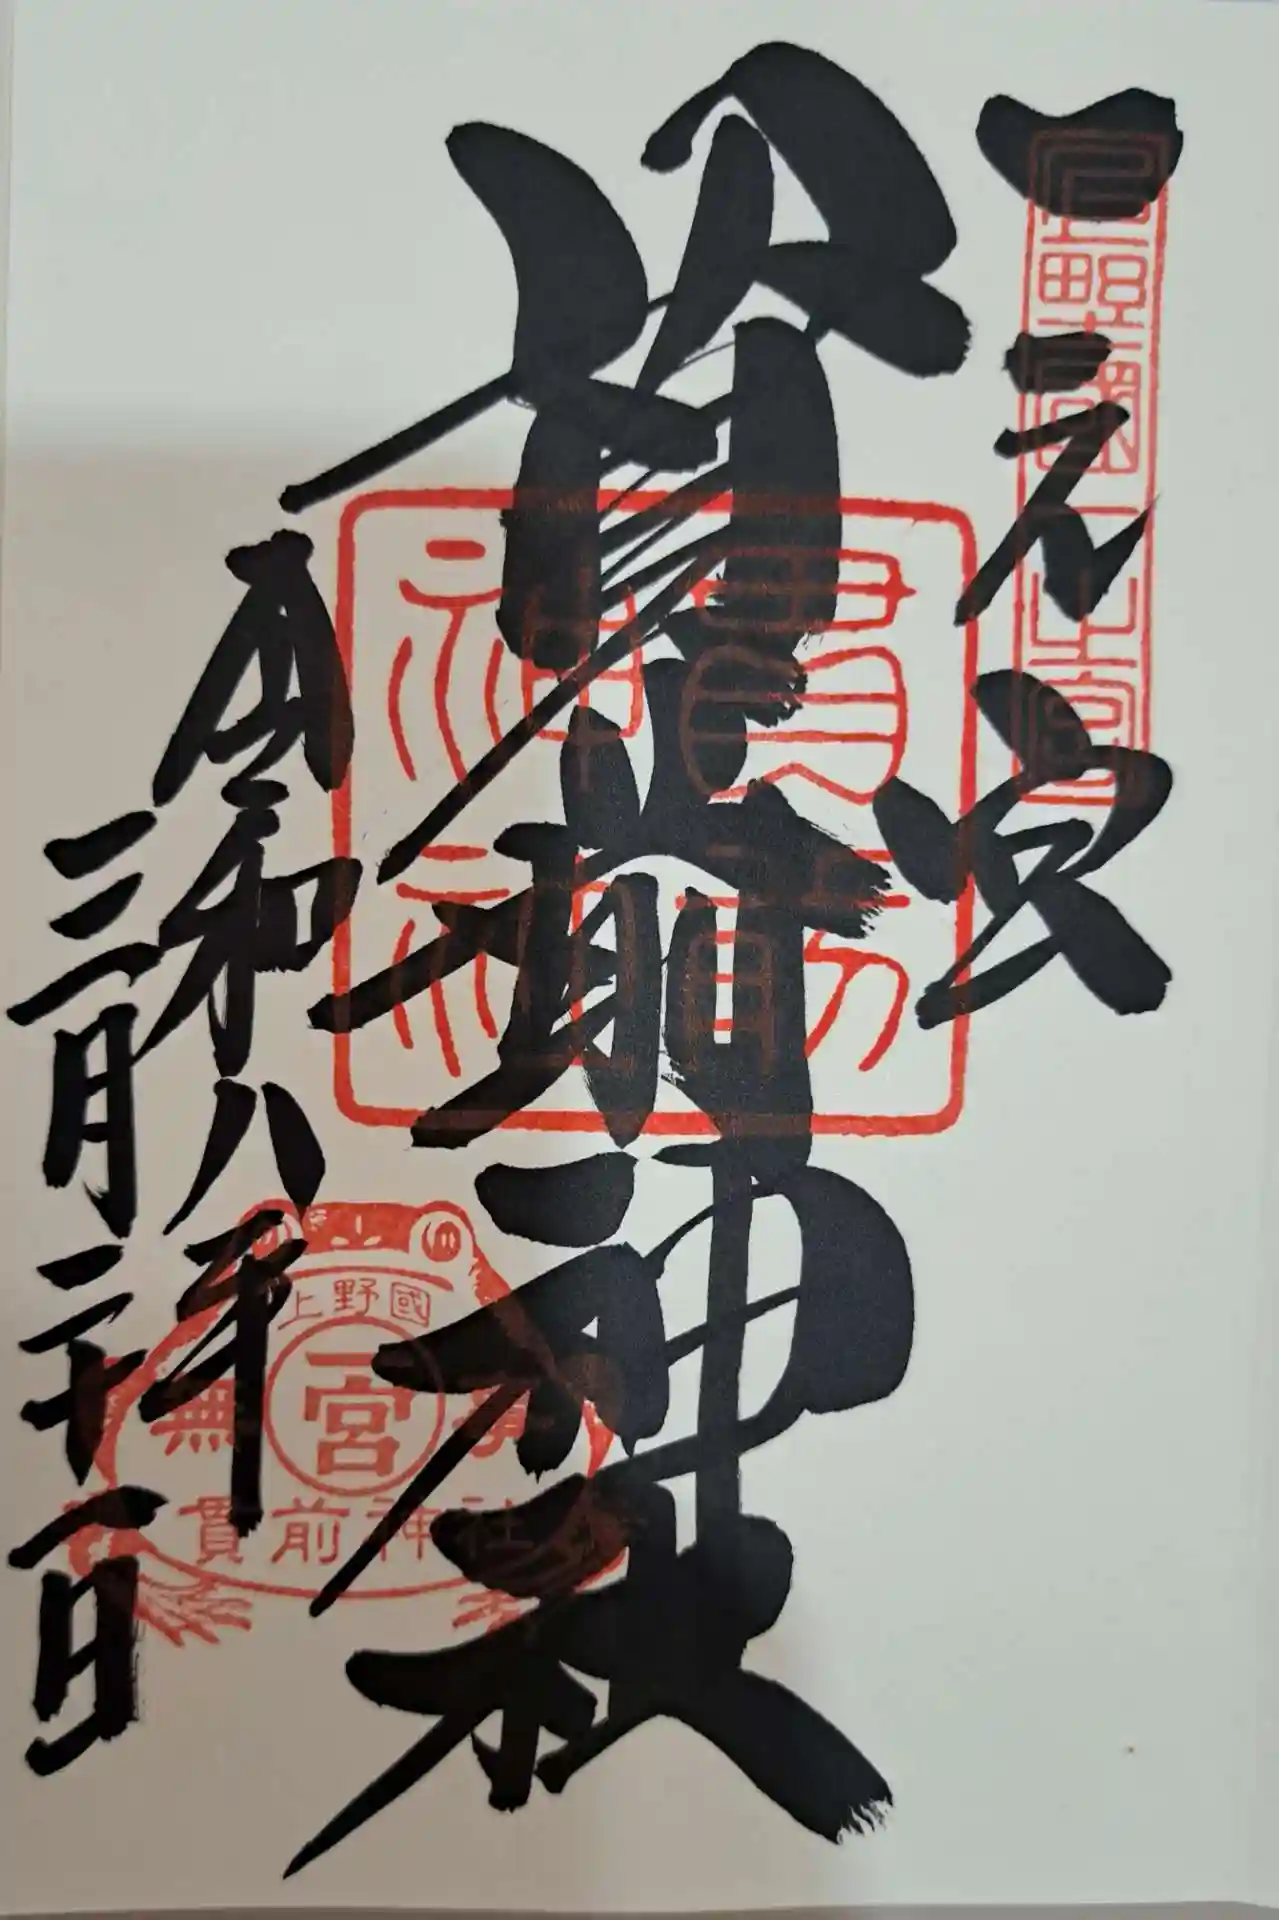 一之宮
上野國一之宮
貫前神社
貫前神社
令和八年
三月二十一日
上野國
一宮
無事
貫前神社